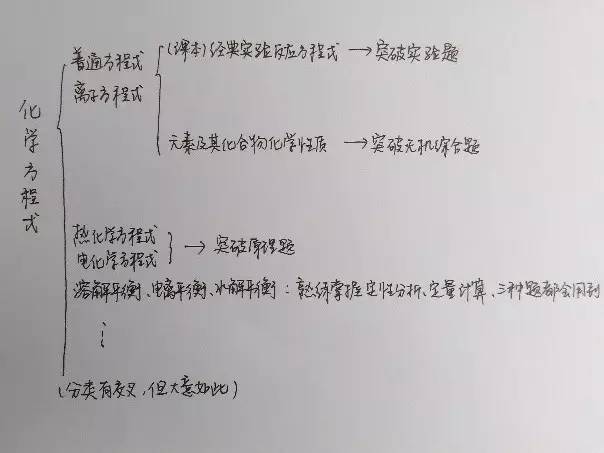 化学方程式
普通方程式
离子方程式
(课本)经典实验反应方程式 → 突破实验题
元素及其化合物化学性质 → 突破无机综合题
热化学方程式
电化学方程式
→ 突破原理题
溶解平衡、电离平衡、水解平衡:熟练掌握定性分析、定量计算、三种题都会用到
(分类有交叉,但大意如此)